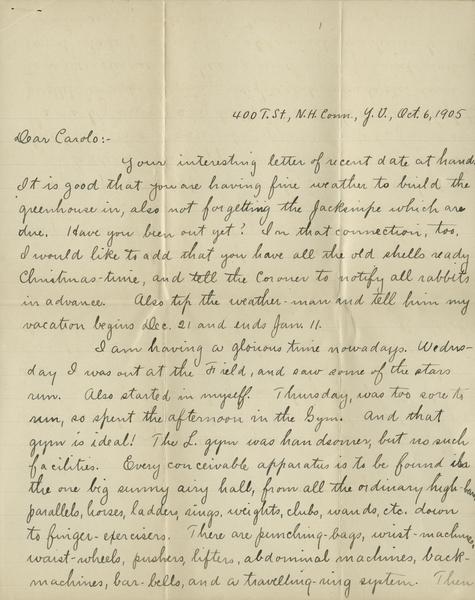 400 T. St., N.H. Conn., Y.U., Oct. 6, 1905
Dear Carolo:-
Your interesting letter of recent date at hand.
It is good that you are having fine weather to build the
greenhouse in, also not forgetting the Jacksnipe which are
due. Have you been out yet? In that connection, too,
I would like to add that you have all the old shells ready
Christmas-time, and tell the Coroner to notify all rabbits
in advance. Also tip the weather-man and tell him my
vacation begins Dec. 21 and ends Jan. 11.
I am having a glorious time nowadays. Wednes-
day I was out at the Field, and saw some of the stars
run. Also started in myself. Thursday, was too sore to
run, so spent the afternoon in the Gym. And that
gym is ideal! The L. gym was handsomer, but no such
facilities. Every conceivable apparatus is to be found in
the one big sunny airy hall, from all the ordinary high-bars,
parallels, horses, ladders, rings, weights, clubs, wands, etc. down
to finger-exercisers. There are punching-bags, wrist-machines,
waist-wheels, pushers, lifters, abdominal machines, back-
machines, bar-bells, and a travelling-ring system. Then